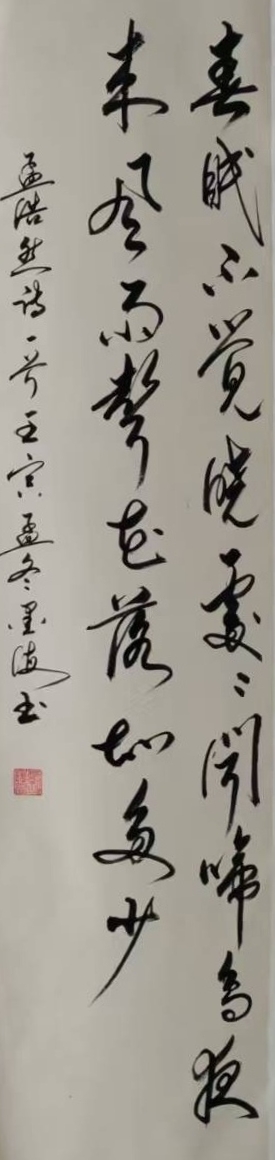 春眠不觉晓处々闻啼鸟夜
来风雨声花落知多少
孟浩然诗一首壬寅孟冬墨海书